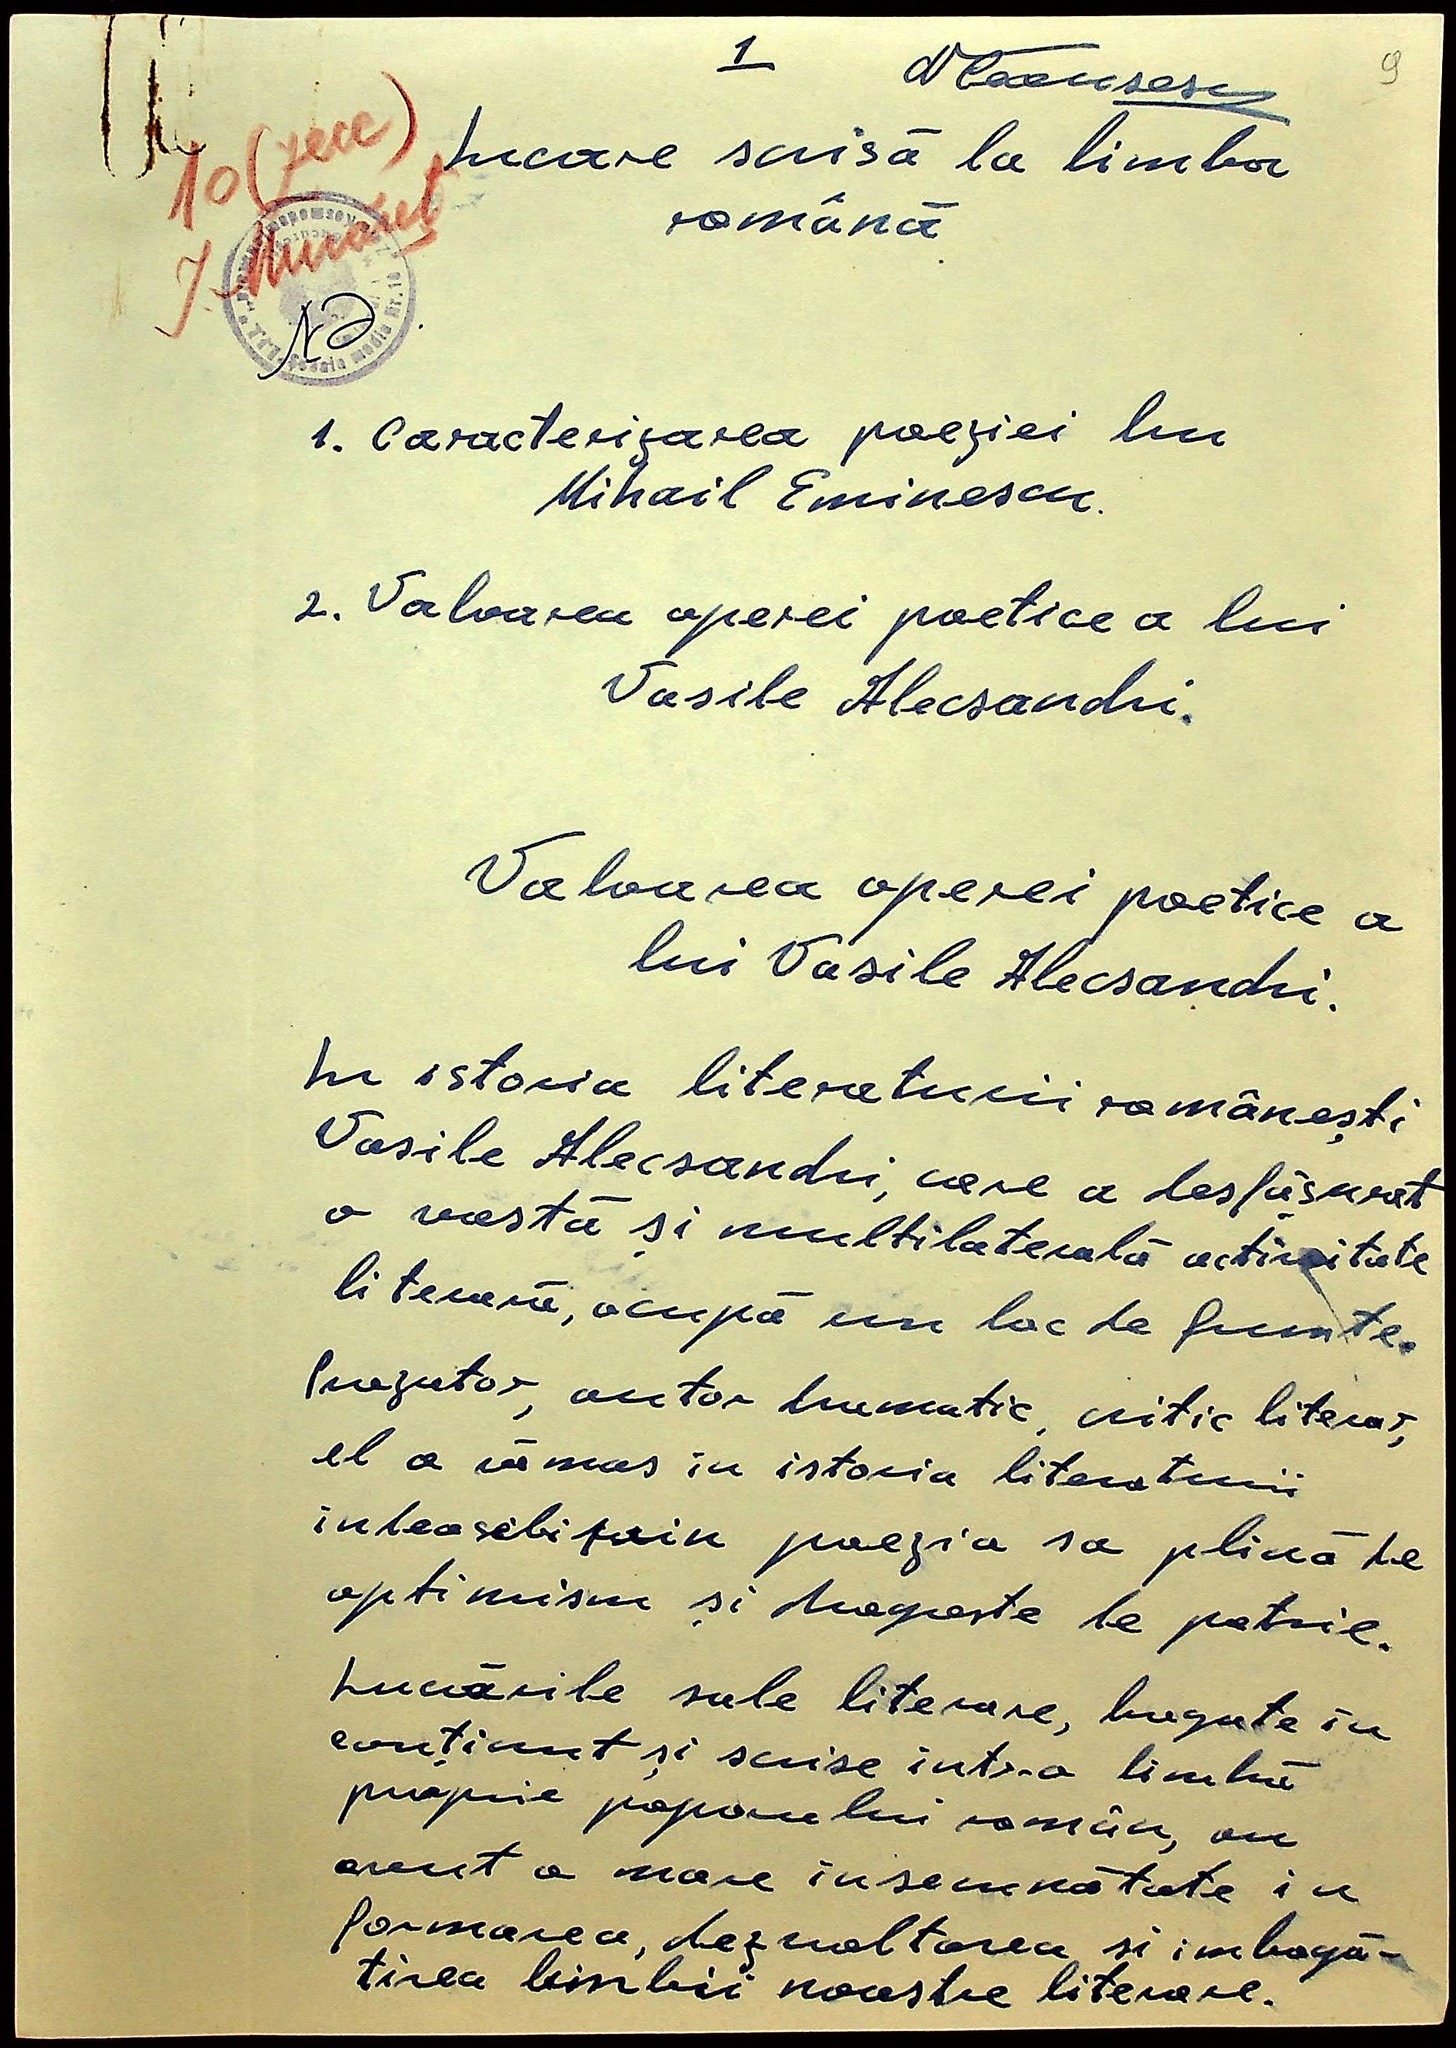 1
NCeausescu
9
10 (zece)
Lucare scrisă la limba
română
1. Caracterizarea poeziei lui
Mihail Eminescu.
2. Valoarea operei poetice a lui
Vasile Alecsandri.
Valoarea operei poetice a
lui Vasile Alecsandri.
In istoria literaturii românești
Vasile Alecsandri, care a desfășurat
o vastă și multilaterală activitate
literară, ocupă un loc de frunte.
Prozator, autor dramatic, critic literar,
el a rămas in istoria literaturii
indeosebi prin poezia sa plină de
optimism și dragoste de patrie.
Lucrările sale literare, bogate in
conținut și scrise intr-o limbă
proprie poporului român, au
avut o mare insemnătate in
formarea, dezvoltarea si imbogă-
tirea limbii noastre literare.